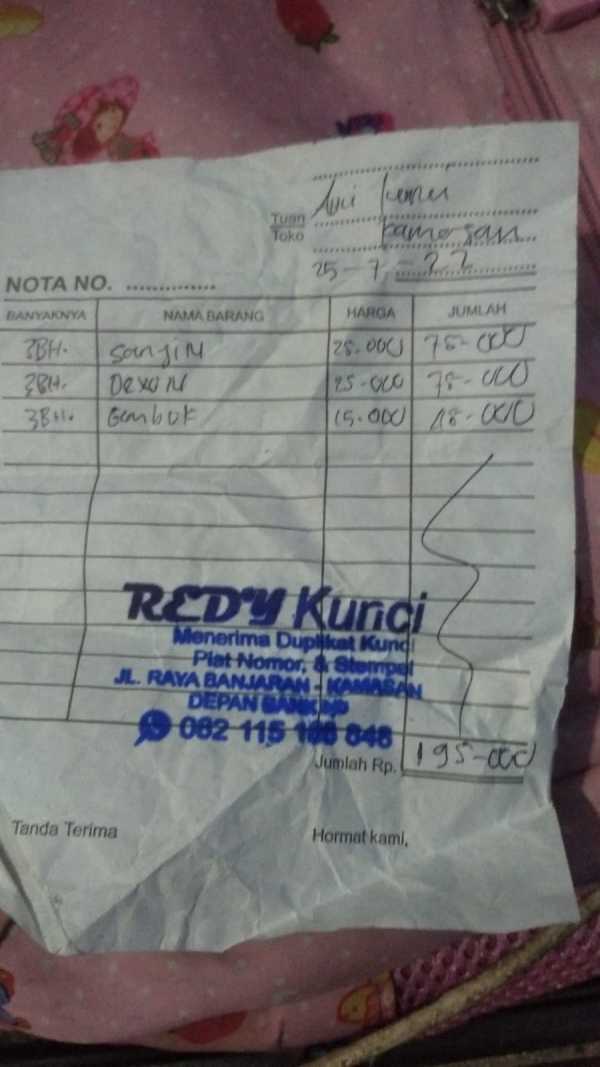 Tuan
Toko
25-7-22
NOTA NO. ..............
BANYAKNYA NAMA BARANG HARGA JUMLAH
3BH. SanjiN 25.000 75-000
3BH. DexoN 25-000 75-000
3BH. Gembok 15.000
REDY Kunci
Menerima Duplikat Kunci
Plat Nomor, & Stempel
JL. RAYA BANJARAN - KAMASAN
DEPAN BANK
082 115
Jumlah Rp. 195-000
Tanda Terima Hormat kami,